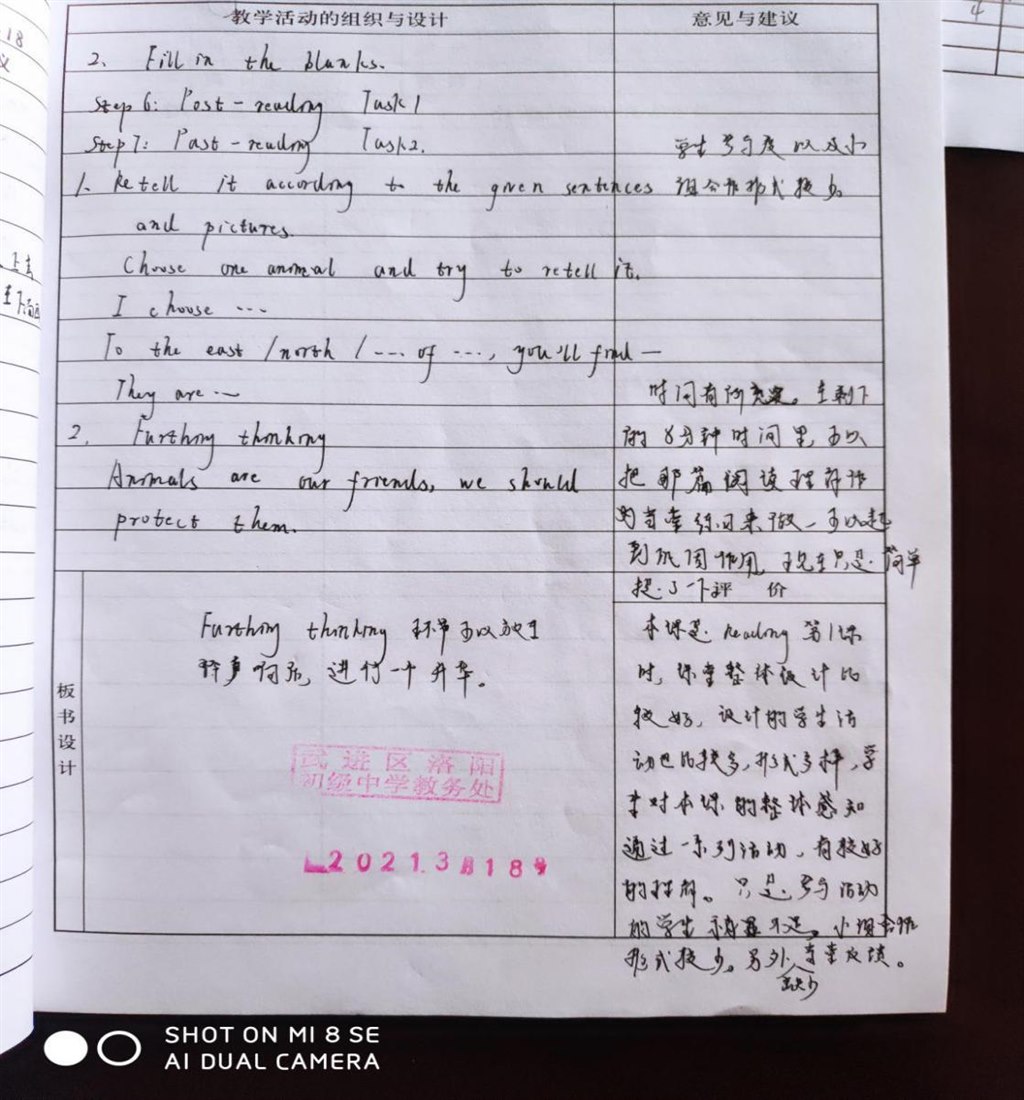 教学活动的组织与设计
意见与建议
2. Fill in the blanks.
Step 6: Post-reading Task 1
Step 7: Post-reading Task 2.
1. Retell it according to the given sentences
and pictures.
Choose one animal and try to retell it.
I choose ...
To the east / north / ... of ..., you'll find —
They are ...
2. Furthing thinking
Animals are our friends, we should
protect them.
学生参与度以及小
组合作形式较少
时间有所充裕。在剩下
的8分钟时间里,可以
把那篇阅读理解作
为当堂练习来做,可以起
到巩固作用,现在只是简单
提了一下评价
板书设计
Furthing thinking 环节可以放在
后,进行一个升华。
本课是 reading 第1课
时,课堂整体设计比
较好,设计的学生活
动也比较多,形式多样,学
生对本课的整体感知
通过一系列活动,有较好
的。只是参与活动
的学生不足。小组合作
形式较少。另外缺少当堂反馈。
武进区洛阳
初级中学教务处
2021.3月18号
18
4
SHOT ON MI 8 SE
AI DUAL CAMERA